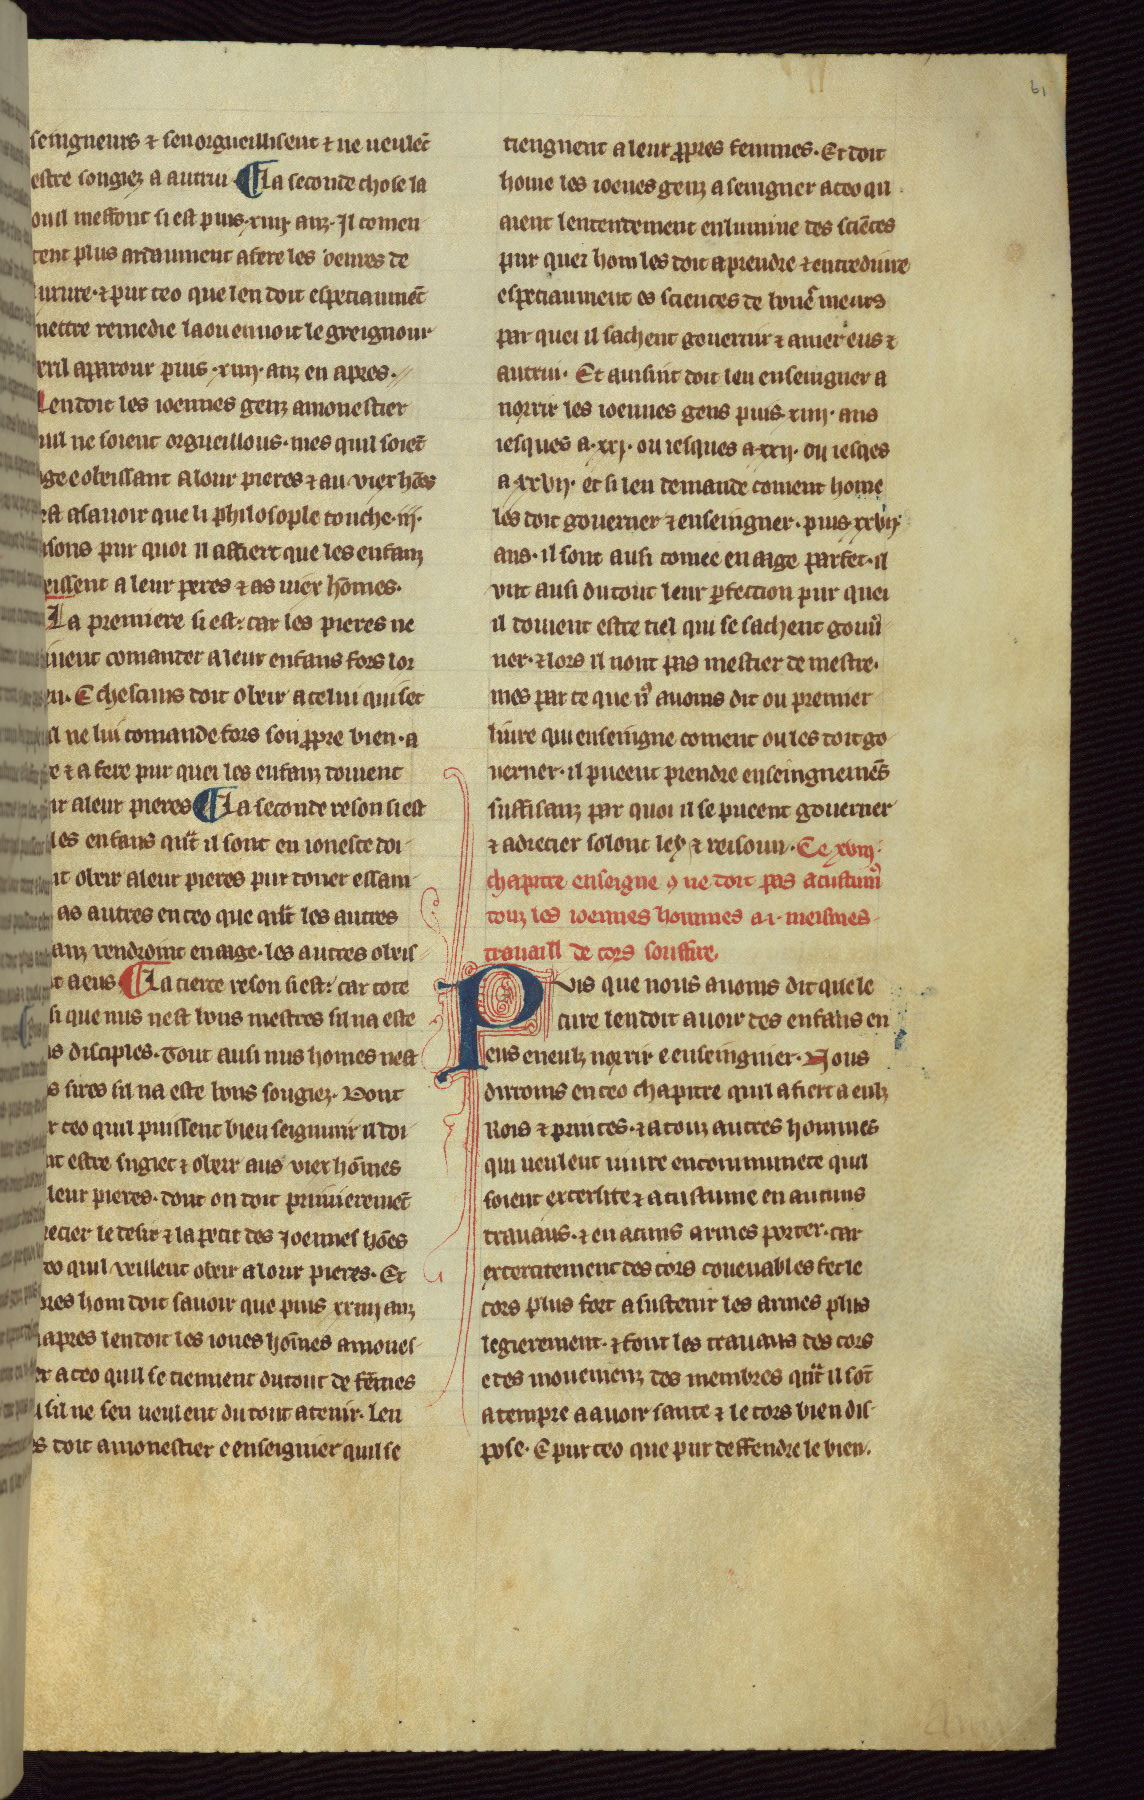 61
seingneurs ⁊ senorgueillisent ⁊ ne veulēt
estre songiez a autrui ¶ La seconde chose la
ouil meffont si est puis .xiiij. anz. Il comen
cent plus ardaument a fere les oevres de
luxure. ⁊ pur ceo que len doit especiaumēt
mettre remedie la ou en voit le greignour
peril aparoir puis .xiiij. anz en apres.
Len doit les ioennes genz amonestier
quil ne soient orgueillous. mes quil soiēt
obeissant a lour pieres ⁊ au viex hōes
est asavoir que li philosophe touche .iij.
resons pur quoi il affiert que les enfanz
obeissent a leur peres ⁊ as viex hōmes.
La premiere si est: car les pieres ne
doivent comander a leur enfans fors lor
bien. E chescuns doit obeir a celui qui set
quil ne lui comande fors son ꝓpre bien. a
fere ⁊ a fere pur quei les enfanz doivent
obeir a leur pieres ¶ La seconde reson si est
les enfans qn̄t il sont en ioneste doi
vent obeir a leur pieres pur doner essam
as autres en ceo que qn̄t les autres
enfanz vendroint en aige. les autres obeis
sent a eus ¶ La tierce reson si est: car tote
si que nus nest bons mestres sil na este
bons disciples. Tout ausi nus homes nest
bons sires sil na este bons songiez. Dont
pur ceo quil puissent bien seignurir il doi
vent estre sugiet ⁊ obeir aus viex hōmes
leur pieres. dont on doit primieremēt
adrecier le desir ⁊ la petit des Joennes hōes
a ceo quil veillent obeir a lour pieres. Et
apres hom doit savoir que puis xxiiij anz
en apres len doit les ioues hōmes amones
ter a ceo quil se tiennent du tout de fēmes
⁊ sil ne sen veulent du tout atenir. Len
les doit amonestier e enseignier quil se
tiengnent a leur ꝓpres femmes. Et doit
home les ioeues genz aseingner a ceo qu
aient lentendement enlumine des sciēces
pur quei hom les doit aprendre ⁊ entredure
especiaument es sciences de bonēs meurs
par quei il sachent governir ⁊ amer eus ⁊
autrui. Et ausint doit len enseingner a
norrir les ioennes gens puis xiiij. ans
iesques a .xxj. ou iesques a .xxij. ou iesqes
a .xxvij. et si len demande coment home
les doit governer ⁊ enseingner. puis .xxvij
ans. il sont ausi comee en aige parfet. il
unt ausi du tout leur ꝑfection pur quei
il doivent estre tiel qui se sachent gou
ner. ⁊ lors il nont pas mestier de mestre.
mes par ce que nꝰ avoms dit ou premier
livre qui enseingne coment ou les doit go
verner. il pueent prendre enseingnemēs
suffisanz par quoi il se pueent governer
⁊ adrecier solonc ley ⁊ reisoun. Ce xviij.
chapitre enseigne ꝯ ne doit pas acustum
touz les ioennes hommes a .i. meismes
travaill de cors souffire.
Puis que nous avoms dit quele
cure len doit avoir des enfans en
eus eneulz norrir e enseingnier. Nous
dirroms en ceo chapitre quil afiert a eulz
Rois ⁊ princes. ⁊ a touz autres hommes
qui veulent vivre en communete quil
soient excerlite ⁊ acustume en aucuns
travaus. ⁊ en acuns armes porter. car
exercitement des cors covenables fet le
cors plus fort a sustenir les armes plus
legierement. ⁊ font les travaus des cors
e des movemenz des membres qn̄t il sōt
atempre a avoir sante ⁊ le cors bien dis
pose. E pur ceo que pur deffendre le bien.